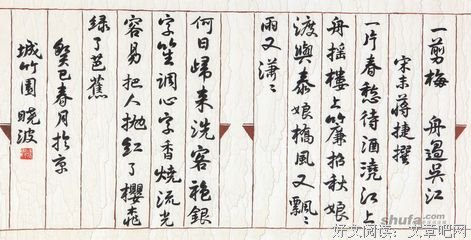 一剪梅 舟過吳江
宋末蔣捷撰
一片春愁待酒澆江上
舟搖樓上簾招秋娘
渡與泰娘橋風又飄〻
雨又瀟〻
何日歸来洗客袍銀
字笙調心字香燒流光
容易把人拋紅了櫻桃
绿了芭蕉
癸巳春月於京
城竹園 晓波
shufa.com
好文阅读：文章吧网